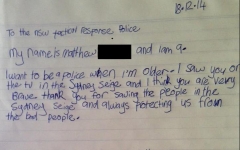 18.12.14
To the NSW tactical Response Police
My name is matthew and i am 9.
I want to be a police when i'm older. I saw you on
the tv in the Sydney seige and I think you are very
Brave. thank you for saving the people in the
Sydney seige and always protecting us from
the bad people.